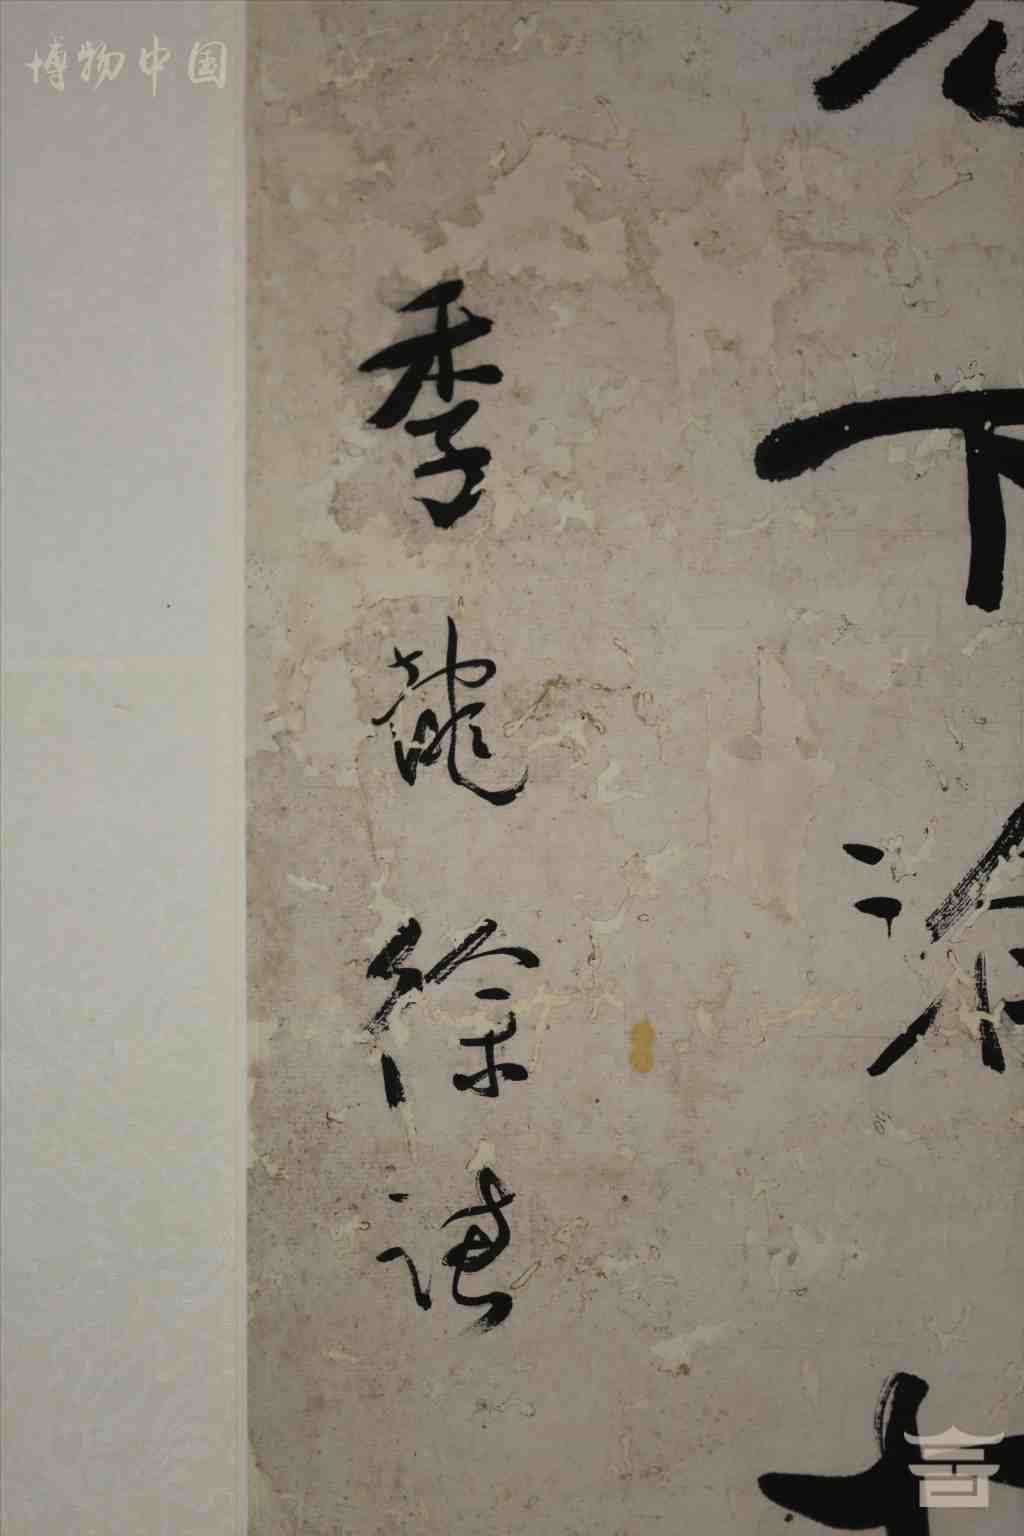 博物中国
下
季龍徐謙